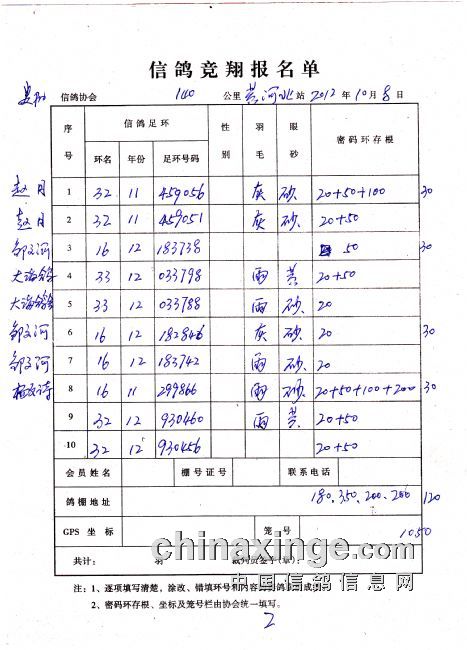 信鸽竞翔报名单
信鸽协会 140 公里 黄河北 站 2012 年 10 月 8 日
序号 信鸽足环 性别 羽毛 眼砂 密码环存根
环名 年份 足环号码
赵月 1 32 11 459056 灰 砂 20+50+100 30
赵月 2 32 11 459051 灰 砂 20+50
邹文河 3 16 12 183738 50 30
大海鸽舍 4 33 12 033798 雨 黄 20+50
大海鸽舍 5 33 12 033788 雨 砂 20
邹文河 6 16 12 182846 灰 砂 20 30
邹文河 7 16 12 183742 雨 砂 20
8 16 11 299866 雨 砂 20+50+100+200 30
9 32 12 930460 雨 黄 20+50
10 32 12 930456 20+50
会员姓名 棚号证号 联系电话
鸽棚地址 180.350.200.200 120
GPS 坐标 笼号 1050
共计: 羽 裁判员签字(章):
chinaxinge.com
中国信鸽信息网
注:1、逐项填写清楚,涂改、错填环号和内容
2、密码环存根、坐标及笼号栏由协会统一填写。
2